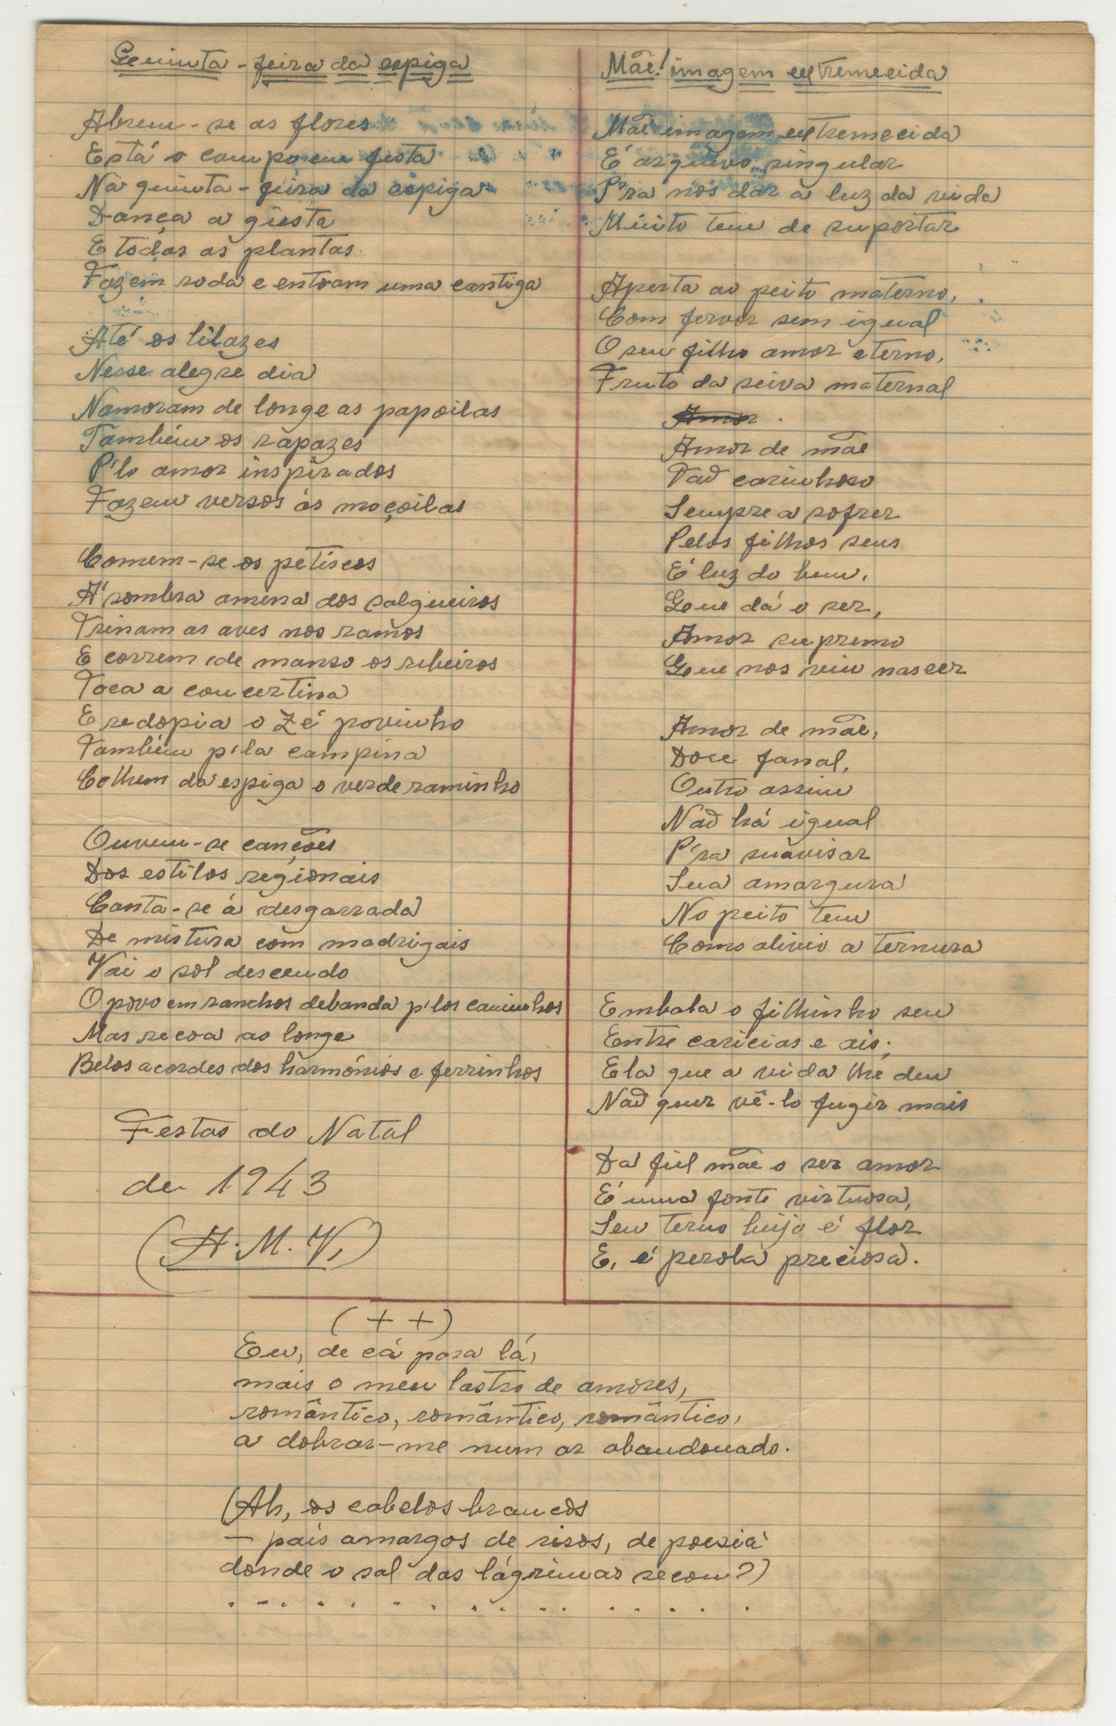 Quinta-feira da espiga
Abrem-se as flores
Está o campo em festa
Na quinta-feira da espiga
Dança a giesta
E todas as plantas
Fazem roda e entoam uma cantiga
Até os lilazes
Nesse alegre dia
Namoram de longe as papoilas
Também os rapazes
P'lo amor inspirados
Fazem versos ás moçoilas
Comem-se os petiscos
Á sombra amena dos salgueiros
Trinam as aves nos ramos
E correm de manso os ribeiros
Toca a concertina
E redopia o Zé povinho
Também p'la campina
Colhem da espiga o verde raminho
Ouvem-se canções
Dos estilos regionais
Canta-se á desgarrada
De mistura com madrigais
Vai o sol descendo
O povo em ranchos debanda p'los caminhos
Mas recoa ao longe
Belos acordes dos harmónios e ferrinhos
Festas do Natal
de 1943
(A. M. V.)
Mãe! imagem extremecida
Mãe imagem extremecida
É arquivo singular
P'ra nos dar à luz da vida
Muito tem de suportar
Aperta ao peito materno,
Com fervor sem igual
O seu filho amor eterno,
Fruto da seiva maternal
Amor
Amor de mãe
Tão carinhoso
Sempre a sofrer
Pelos filhos seus
É luz do bem,
Que dá o ser,
Amor supremo
Que nos viu nascer
Amor de mãe,
Doce fanal,
Outro assim
Não há igual
P'ra suavisar
Sua amargura
No peito tem
Como alivio a ternura
Embala o filhinho seu
Entre caricias e ais;
Ela que a vida lhe deu
Não quer vê-lo fugir mais
Da fiel mãe o ser amor
É uma fonte virtuosa,
Seu terno beijo é flor
E, é perola preciosa.
(++)
Eu, de cá para lá,
mais o meu lastro de amores,
romântico, romântico, romântico,
a dobrar-me num ar abandonado.
(Ah, os cabelos brancos
— pais amargos de risos, de poesia
donde o sal das lágrimas secou?)
. - . . . - . . . . . . . . .